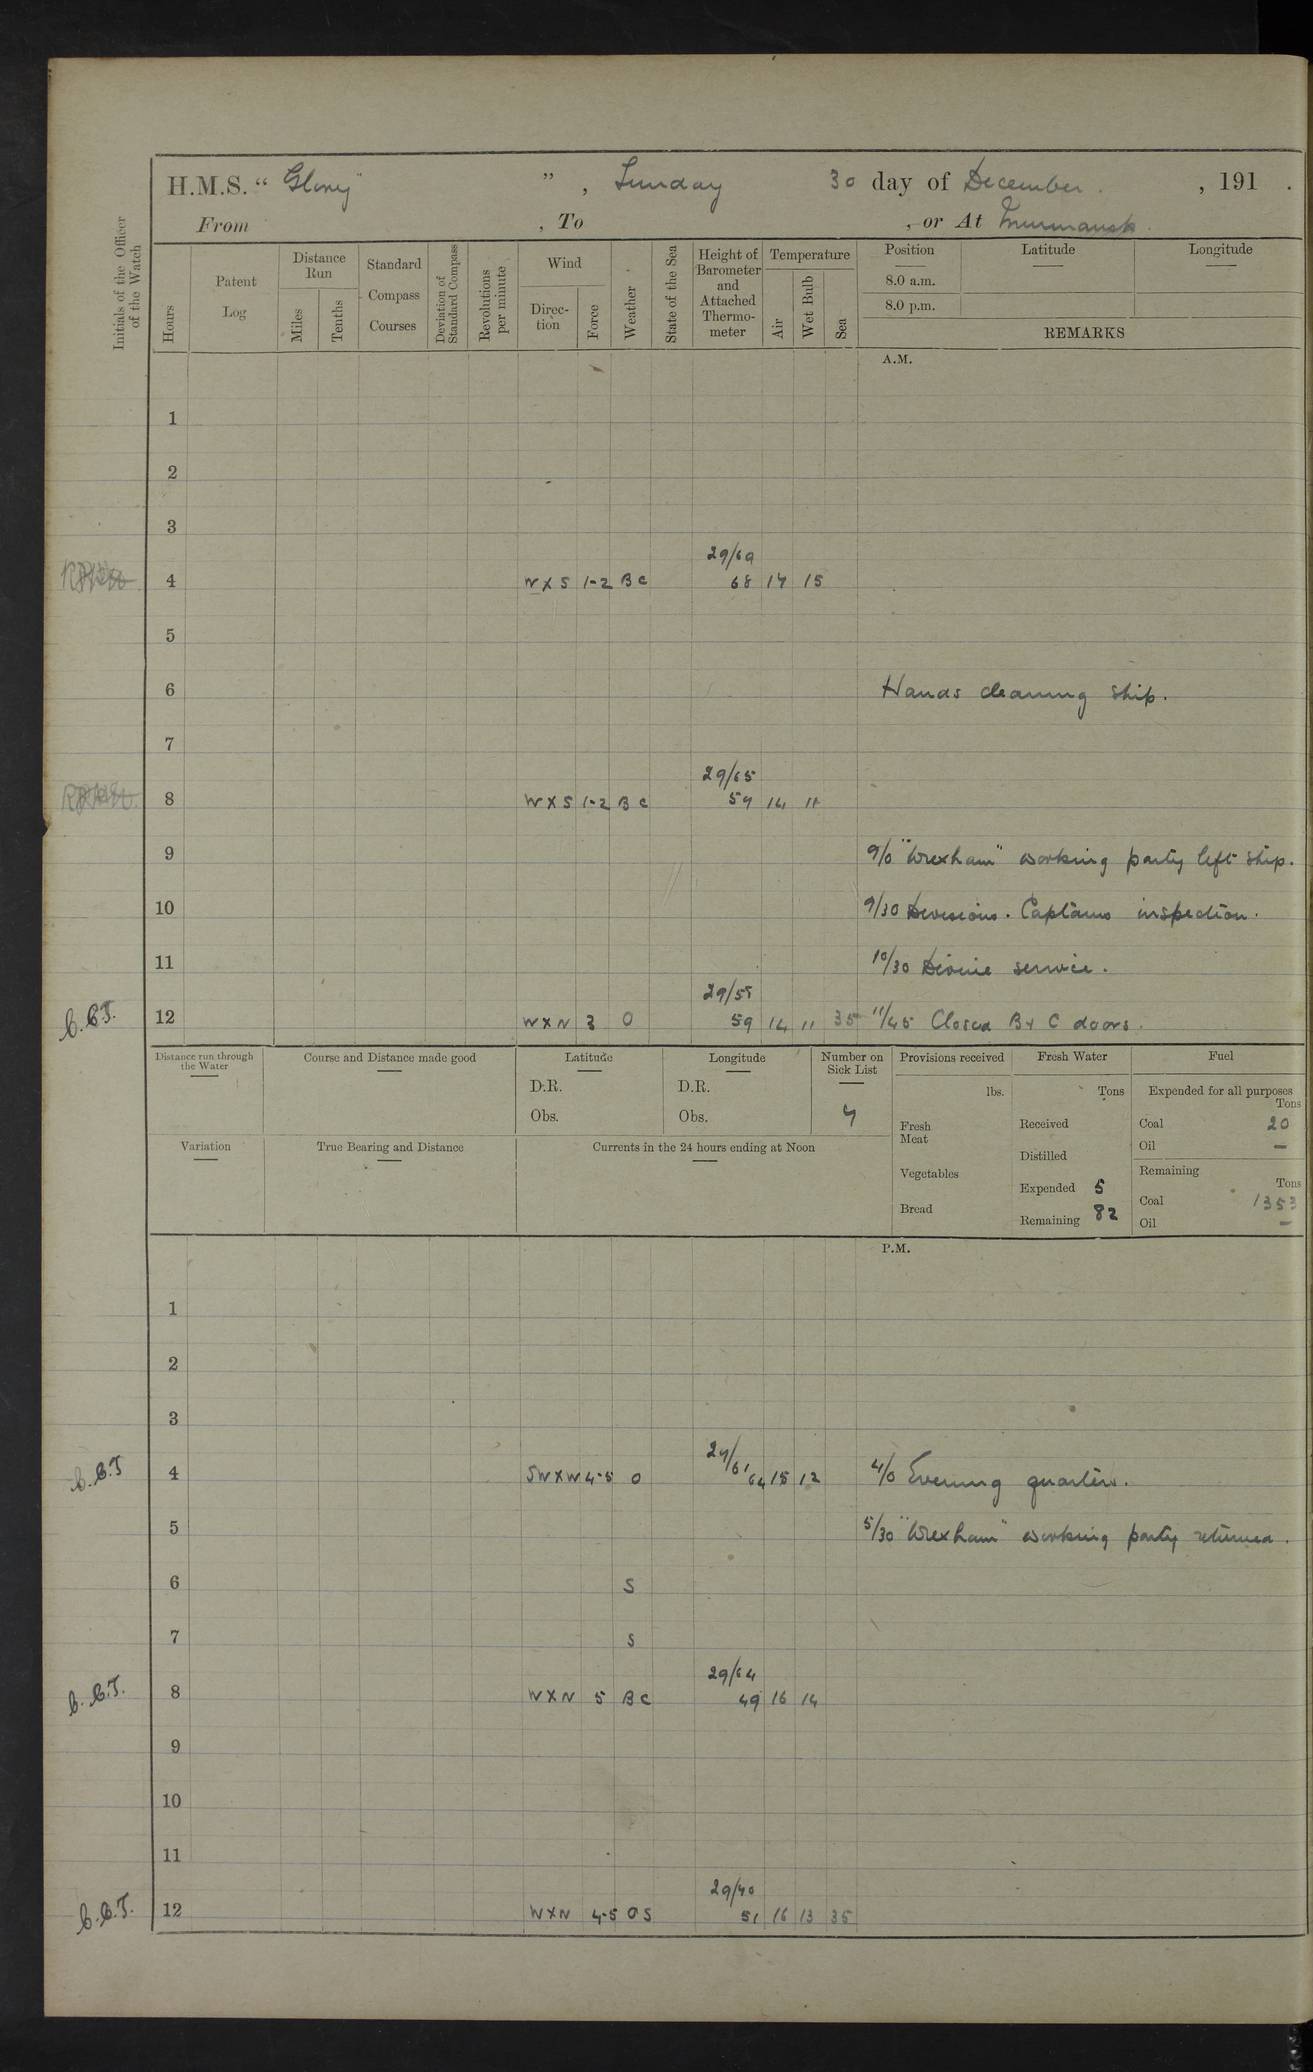 H.M.S. “ Glory ” , Sunday 30 day of December , 191 .
From , To , or At Murmansk.
Initials of the Officer of the Watch
Hours
Patent Log
Distance Run
Miles
Tenths
Standard Compass Courses
Deviation of Standard Compass
Revolutions per minute
Wind
Direc-tion
Force
Weather
State of the Sea
Height of Barometer and Attached Thermo-meter
Temperature
Air
Wet Bulb
Sea
Position Latitude Longitude
8.0 a.m.
8.0 p.m.
REMARKS
A.M.
1
2
3
29/69
4 W X S 1-2 B C 68 17 15
5
6 Hands cleaning ship.
7
29/65
8 W X S 1-2 B C 59 14 11
9 9/0 "Wrexham" working party left ship.
10 9/30 Divisions. Captains inspection.
11 10/30 Divine service.
29/55
C.C.T. 12 W X N 3 O 59 14 11 35 11/45 Closed B & C doors.
Distance run through the Water
Course and Distance made good
Latitude
D.R.
Obs.
Longitude
D.R.
Obs.
Number on Sick List
Provisions received
lbs.
Fresh Meat
Vegetables
Bread
Fresh Water
Tons
Received
Distilled
Expended 5
Remaining 82
Fuel
Expended for all purposes
Tons
Coal 20
Oil —
Remaining
Tons
Coal 1353
Oil —
Variation
True Bearing and Distance
Currents in the 24 hours ending at Noon
P.M.
1
2
3
C.C.T 4 SW X W 4-5 O 64 15 12 4/0 Evening quarters.
5 5/30 "Wrexham" working party returned.
6 S
7 S
29/64
C.C.T. 8 W X N 5 B C 49 16 14
9
10
11
29/70
C.C.T. 12 W X N 4-5 O S 51 16 13 35